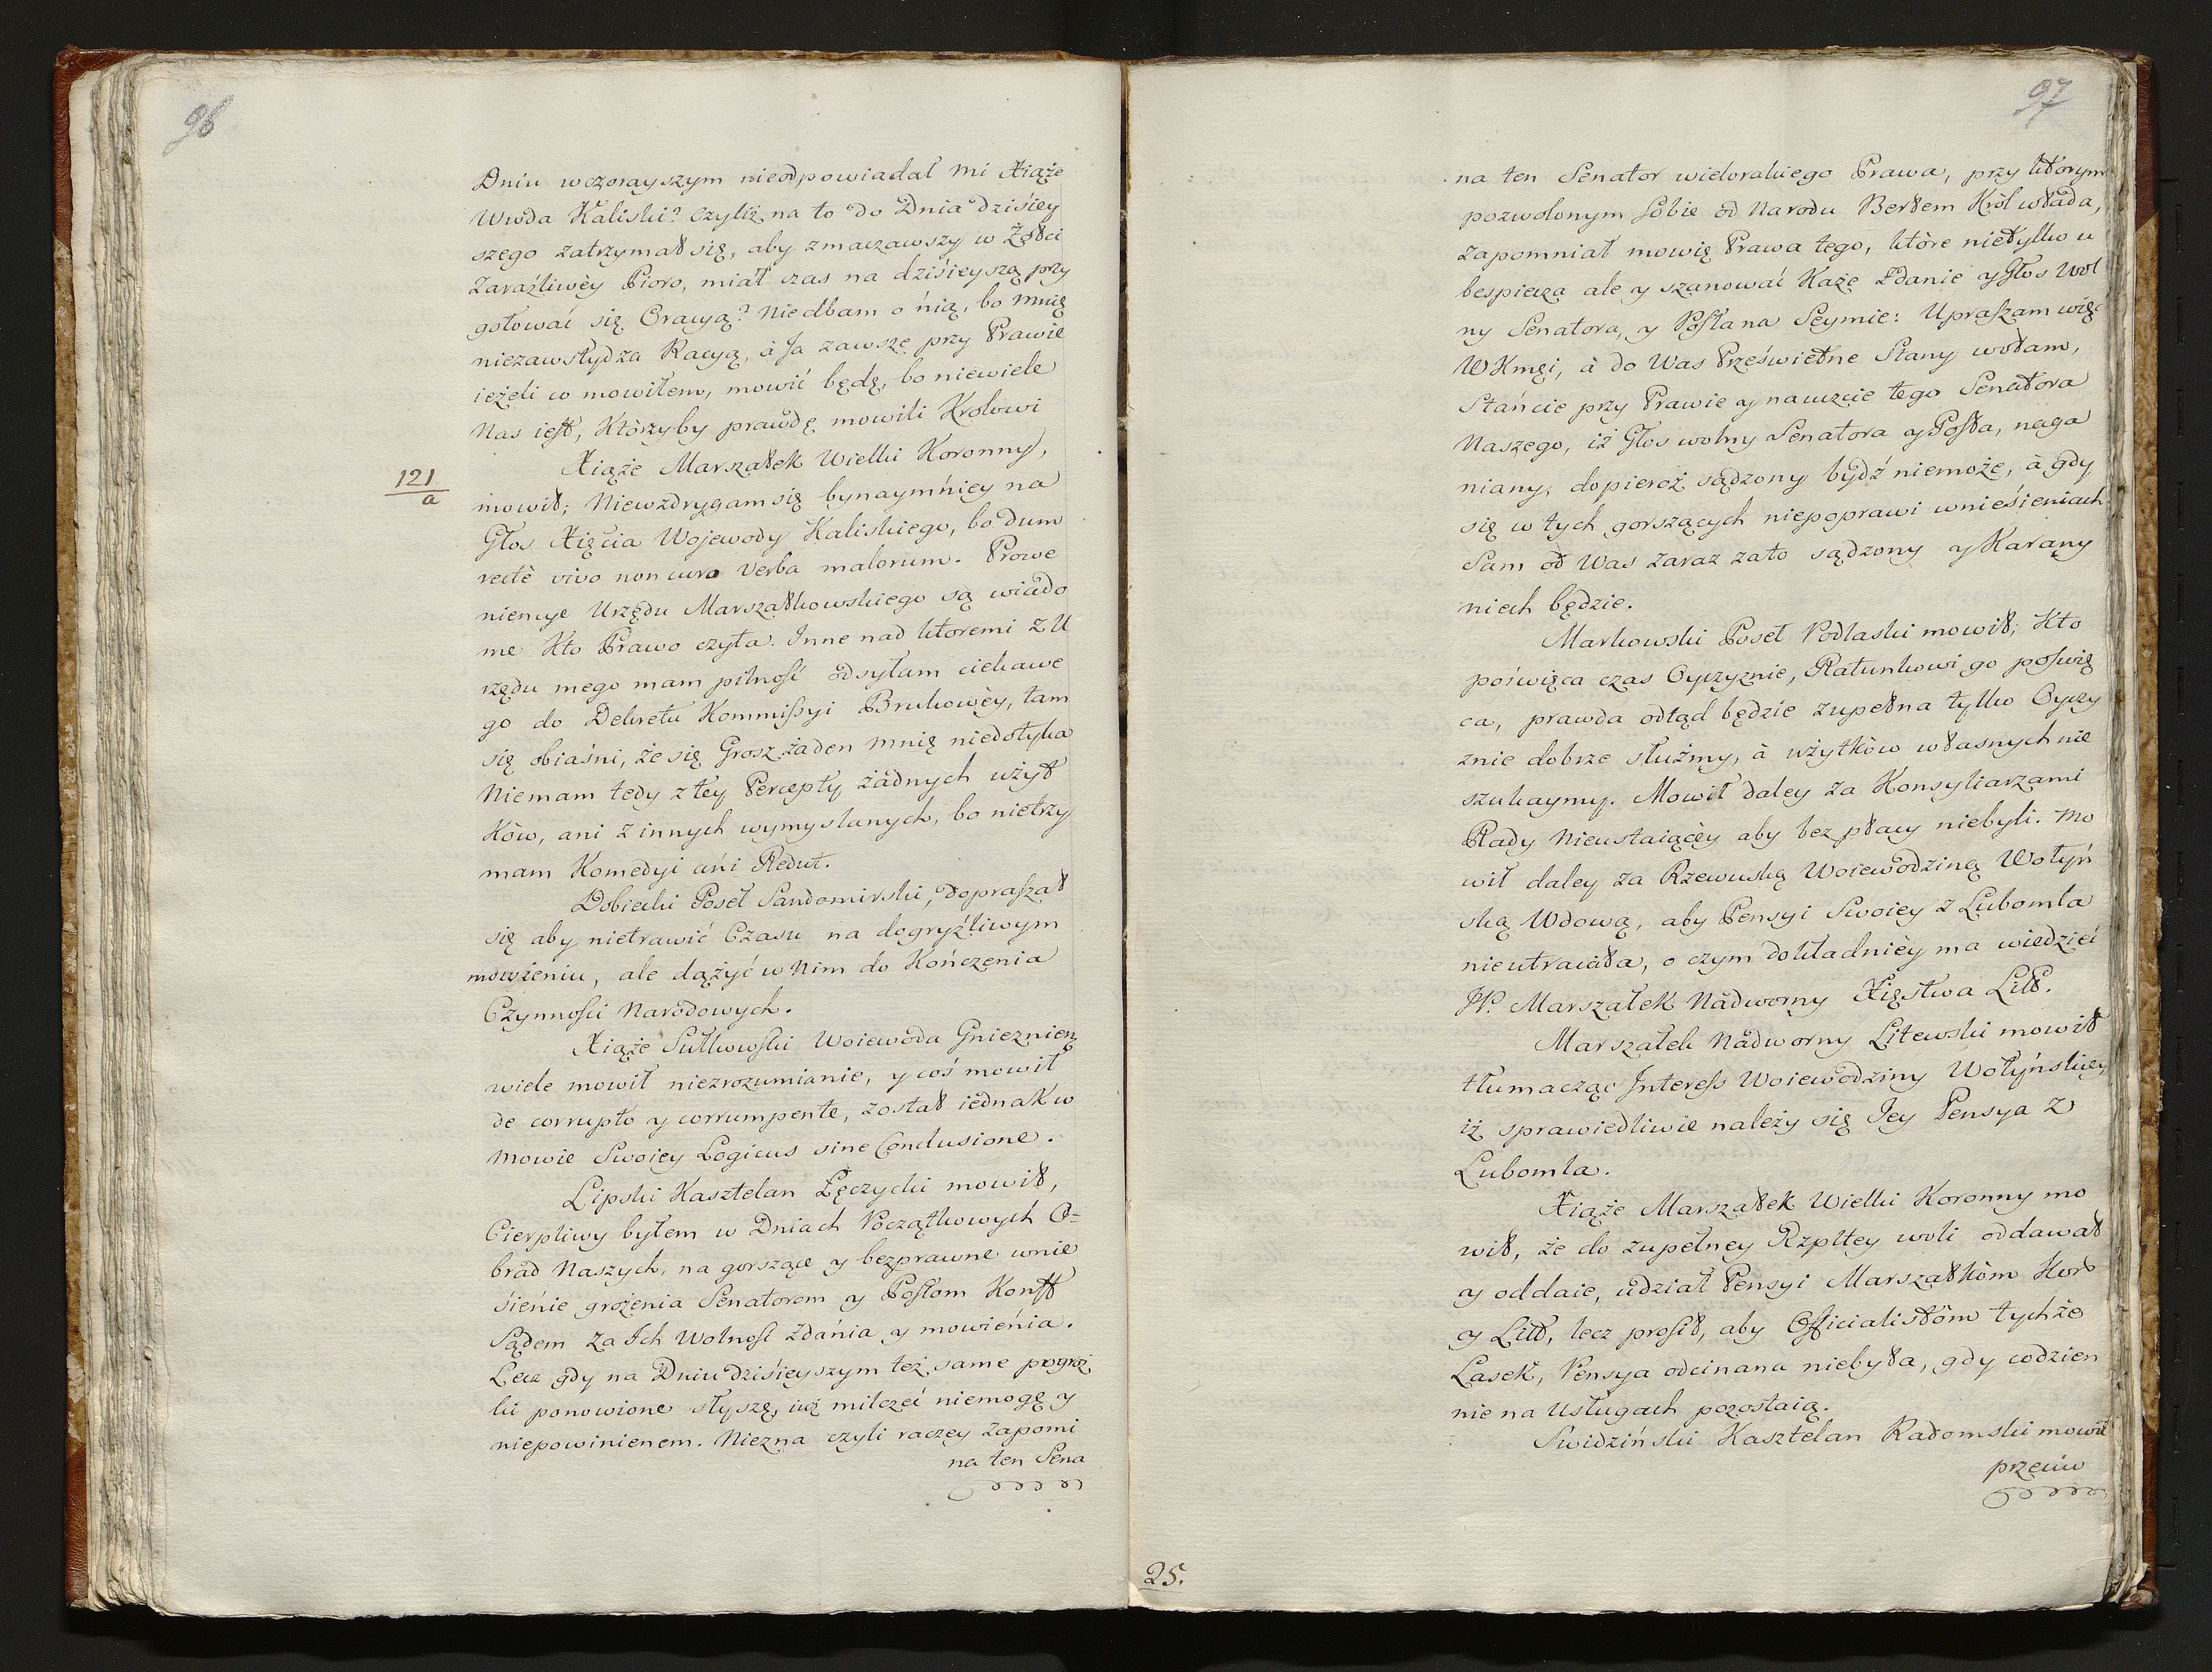 96
Dniu wczorayszym nieodpowiadał mi Xiąże
Wwda Kaliski? Czyliż na to do Dnia dzisiey
szego zatrzymał się, aby zmaczawszy w Żółci
Zaraźliwèy Pioro, miał czas na dzisieyszą przy
gotować się Oracyą? Niedbam o nią, bo mnię
niezawstydza Racyą, à Ja zawsze przy Prawie
ieżeli co mowiłem, mowić będę, bo niewiele
Nas iest, Którzyby prawdę mowili Krolowi
Xiąże Marszałek Wielki Koronny,
121
a
mowił; Niewzdrygam się bynaymniey na
Głos Xięcia Wojewody Kaliskiego, bo dum
rectè vivo non curo Verba malorum. Prowe
niencye Urzędu Marszałkowskiego są wiado
me Kto Prawo czyta. Inne nad ktoremi z U
rzędu mego mam pilność odsyłam ciekawe
go do Dekretu Kommissyi Brukowèy, tam
się obiaśni, że się Grosz żaden mnię niedotyka
Niemam tedy z tey Percepty żadnych użyt
Ków, ani z innych wymyslanych, bo nietrzy
mam Komedyi ani Redut.
Dobiecki Poseł Sandomirski, Dopraszał
się aby nietrawić Czasu na dogryźliwym
mowieniu, ale dążyć w Nim do Kończenia
Czynności Narodowych.
Xiąże Sułkowski Woiewoda Gnieznien
wiele mowił niezrozumianie, y coś mowił
de corrupto y corrumpente, został iednak w
mowie Swoiey Logicus sine Conclusione.
Lipski Kasztelan Łęczycki mowił,
Cierpliwy byłem w Dniach Początkowych O=
brad Naszych, na gorszące y bezprawne wnie
sienie grożenia Senatorom y Posłom Konst
Sądem za Ich Wolność Zdania y mowienia.
Lecz gdy na Dniu dzisieyszym też same pogroż
ki ponowione słyszę, iuż milczeć niemogę y
niepowinienem. Niezna czyli raczey Zapomi
na ten Sena
97
na ten Senator wielorakiego Prawa, przy ktorym
pozwolonym sobie od Narodu Berłem Król włada,
zapomniał mowię Prawa tego, które nietylko u
bespiecza ale y szanować Każe Zdanie y Głos Wol
ny Senatora, y Posła na Seymie: Upraszam więc
WKmci, à do Was Prześwietne Stany wołam,
Stańcie przy Prawie y nauczcie tego Senatora
Naszego, iż Głos wolny Senatora y Posła, naga
niany, dopieroż sądzony bydź niemoże, à gdy
się w tych gorszących niepoprawi wniesieniach
Sam od Was zaraz zato sądzony y Karany
niech będzie.
Markowski Poseł Podlaski mowił; Kto
poświęca czas Oyczyznie, Ratunkowi go poswię
ca, prawda odtąd będzie zupełna tylko Oyczy
znie dobrze służmy, à użytków własnych nie
szukaymy. Mowił daley za Konsyliarzami
Rady Nieustaiącèy aby bez płacy niebyli. Mo
wił daley za Rzewuską Woiewodziną Wołyń
ską Wdową, aby Pensyi Swoiey z Lubomla
nieutraciła, o czym dokładniey ma wiedzieć
JP. Marszałek Nadworny Xięstwa Litt.
Marszałek Nadworny Litewski mowił
tłumacząc Interess Woiewodziny Wołyńskiey
iż sprawiedliwie należy się Jey Pensya z
Lubomla.
Xiąże Marszałek Wielki Koronny mo
wił, że do zupełney Rzpltey woli oddawał
y oddaie, udział Pensyi Marszałkòm Kor
y Litt, lecz prosił, aby Officialistòm tychże
Lasek, Pensya odcinana niebyła, gdy codzien
nie na Usługach pozostaią.
Swidziński Kasztelan Radomski mowił
przeciw
25.